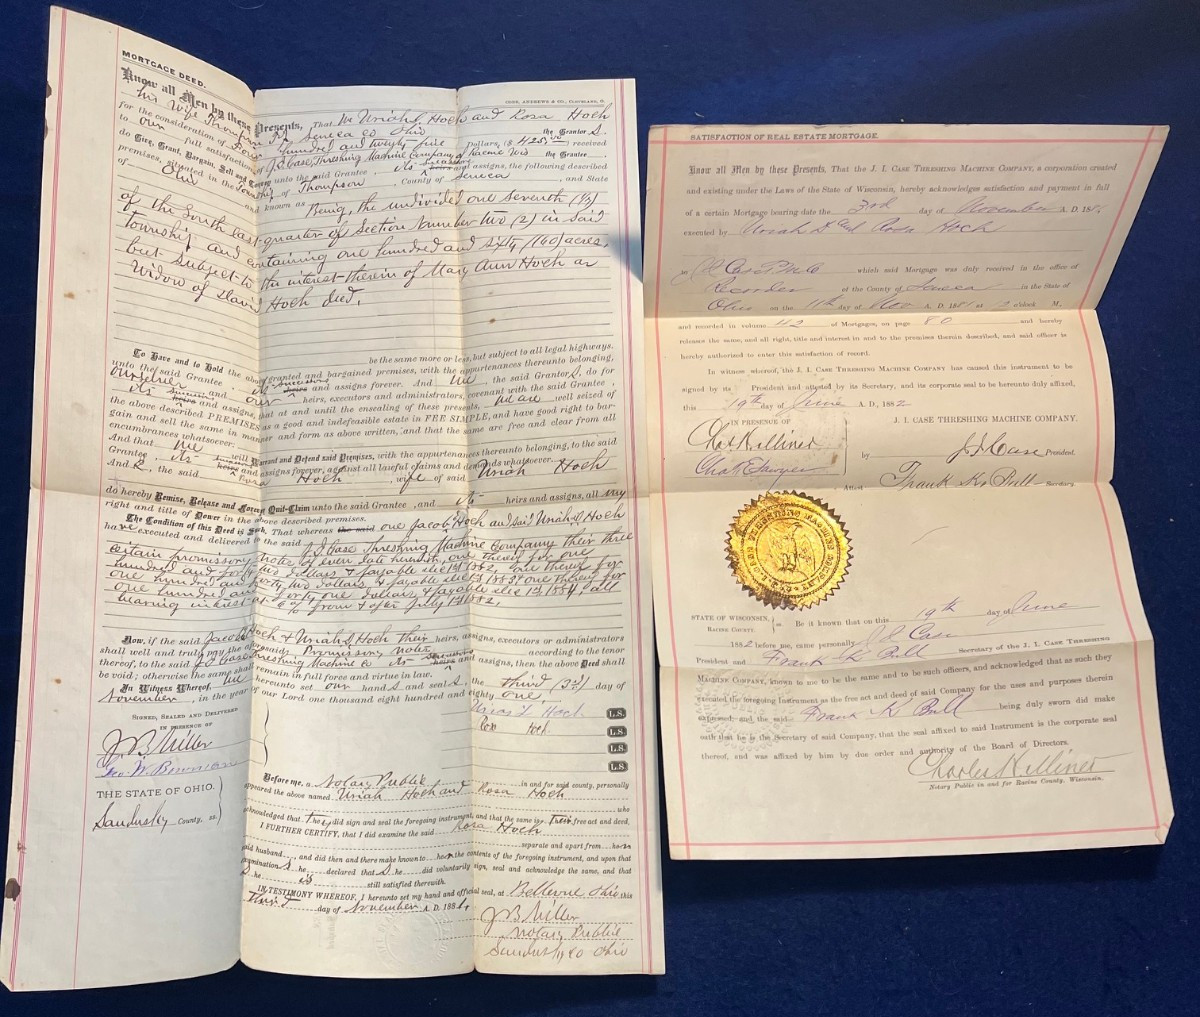 MORTGAGE DEED.
COBB, ANDREWS & CO., CLEVELAND, O.
Know all Men by these Presents, That We Uriah S. Hoch and Rosa Hoch
his wife Thompson Tp Seneca Co Ohio the Grantors
for the consideration of Four hundred and twenty five Dollars, ($ 425.00) received
to our full satisfaction of J.I. Case, Threshing Machine Company of Racine Wis the Grantee
do Give, Grant, Bargain, Sell and Convey unto the said Grantee, its successors heirs and assigns, the following described
premises, situated in the Township of Thompson, County of Seneca, and State
of Ohio and known as Being, the undivided one seventh (1/7)
of the South east quarter of Section Number two (2) in said
township and containing one hundred and sixty (160) acres,
but subject to the interest therein of Mary Ann Hoch as
Widow of David Hoch died,
be the same more or less, but subject to all legal highways.
To Have and to Hold the above granted and bargained premises, with the appurtenances thereunto belonging,
unto the said Grantee, its successors heirs and assigns forever. And We the said Grantors, do for
ourselves and our heirs, executors and administrators, covenant with the said Grantee,
its successors heirs and assigns, that at and until the ensealing of these presents, we are well seized of
the above described PREMISES as a good and indefeasible estate in FEE SIMPLE, and have good right to bar-
gain and sell the same in manner and form as above written, and that the same are free and clear from all
encumbrances whatsoever.
And that We will Warrant and Defend said Premises, with the appurtenances thereunto belonging, to the said
Grantee, its successors heirs and assigns forever, against all lawful claims and demands whatsoever.
And I, the said Rosa Hoch, wife of said Uriah Hoch
do hereby Remise, Release and Forever Quit-Claim unto the said Grantee, and its heirs and assigns, all my
right and title of Dower in the above described premises.
The Condition of this Deed is Such, That whereas the said one Jacob Hoch and said Uriah S Hoch
have executed and delivered to the said J.I. Case Threshing Machine Company their three
certain promissory notes of even date herewith, one thereof for one
hundred and forty two dollars & payable Dec 1st 1882, one thereof for
one hundred and forty two dollars & payable Dec 1st 1883, one thereof for
one hundred and forty one dollars & payable Dec 1st 1884, all
bearing interest at 6% from & after July 1st 1882.
Now, if the said Jacob Hoch & Uriah S Hoch their heirs, assigns, executors or administrators
shall well and truly pay the aforesaid Promissory notes according to the tenor
thereof, to the said J.I. Case Threshing Machine Co its successors heirs and assigns, then the above Deed shall
be void; otherwise the same shall remain in full force and virtue in law.
In Witness Whereof, We hereunto set our hands and seals, the third (3rd) day of
November, in the year of our Lord one thousand eight hundred and eighty one.
SIGNED, SEALED AND DELIVERED
IN PRESENCE OF
Uriah S Hoch L.S.
Rosa Hoch L.S.
L.S.
L.S.
J B Miller
Geo. W. Brownson
THE STATE OF OHIO.
Sandusky County, ss.
Before me, a Notary Public in and for said county, personally
appeared the above named Uriah Hoch and Rosa Hoch
who
acknowledged that they did sign and seal the foregoing instrument, and that the same is their free act and deed.
I FURTHER CERTIFY, that I did examine the said Rosa Hoch
separate and apart from her
said husband and did then and there make known to her the contents of the foregoing instrument, and upon that
examination she declared that she did voluntarily sign, seal and acknowledge the same, and that
she is still satisfied therewith.
IN TESTIMONY WHEREOF, I hereunto set my hand and official seal, at Bellevue Ohio, this
third day of November A. D. 1881.
J B Miller
Notary Public
Sandusky co Ohio
SATISFACTION OF REAL ESTATE MORTGAGE.
Know all Men by these Presents, That the J. I. CASE THRESHING MACHINE COMPANY, a corporation created
and existing under the Laws of the State of Wisconsin, hereby acknowledges satisfaction and payment in full
of a certain Mortgage bearing date the 3rd day of November A. D. 1881
executed by Uriah S and Rosa Hoch
to J I Case T. M. Co which said Mortgage was duly received in the office of
Recorder of the County of Seneca in the State of
Ohio on the 11th day of Nov A. D. 1881 at 12 o'clock M,
and recorded in volume 112 of Mortgages, on page 80 and hereby
release the same, and all right, title and interest in and to the premises therein described, and said officer is
hereby authorized to enter this satisfaction of record.
In witness whereof, the J. I. CASE THRESHING MACHINE COMPANY has caused this instrument to be
signed by its President and attested by its Secretary, and its corporate seal to be hereunto duly affixed,
this 19th day of June A. D., 1882
IN PRESENCE OF
J. I. CASE THRESHING MACHINE COMPANY.
Chas H Lilliner
by J. I. Case President.
Chas R Sawyer
Attest Frank K. Bull Secretary.
STATE OF WISCONSIN,
RACINE COUNTY. ss. Be it known that on this 19th day of June
1882 before me, personally J I Case
President and Frank K Bull Secretary of the J. I. CASE THRESHING
MACHINE COMPANY, known to me to be the same and to be such officers, and acknowledged that as such they
executed the foregoing Instrument as the free act and deed of said Company for the uses and purposes therein
expressed; and the said Frank K Bull being duly sworn did make
oath that he is the Secretary of said Company, that the seal affixed to said Instrument is the corporate seal
thereof, and was affixed by him by due order and authority of the Board of Directors.
Notary Public in and for Racine County, Wisconsin.